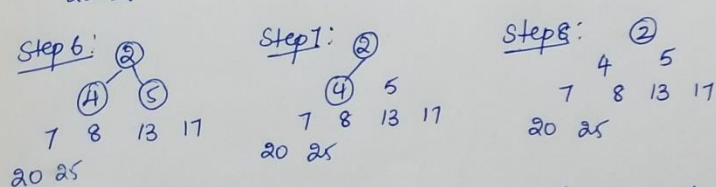 Step 6: 2
4 5
7 8 13 17
20 25
Step 7: 2
4 5
7 8 13 17
20 25
Step 8: 2
4 5
7 8 13 17
20 25